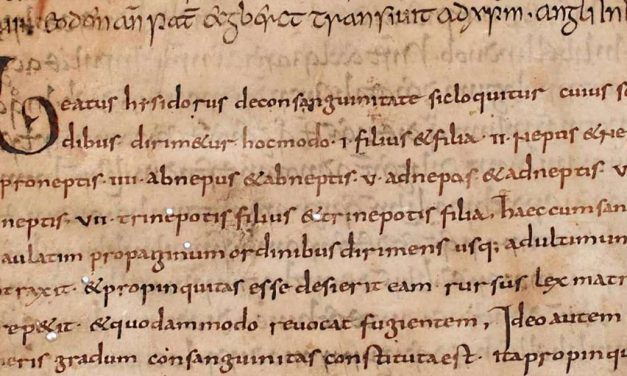 Eodem an̄ pat̄ ecgberct transiuit ad xp̄m · angli in
Beatus hysidorus deconsanguinitate sicloquitur cuius
dibus dirim&ur hocmodo · I · filius & filia · II · neptis & ne
proneptis IIII abnepus & abneptis · V · adnepos & adneptis V
neptis · VII · trinepotis filius & trinepotis filia, haec cum san
aulatim propaginum ordinibus dirimens usq; ad ultimum
traxit · & propinquitas esse desierit eam rursus lex matr
rep&it · & quodammodo reuocat fugientem, Ideo autem
neris gradum consanguinitas constituta est · ita propinqu